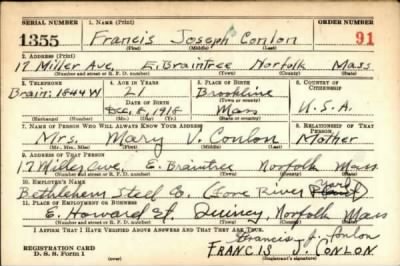 SERIAL NUMBER 1. NAME (Print) ORDER NUMBER
1355 Francis Joseph Conlon 91
(First) (Middle) (Last)
2. ADDRESS (Print)
17 Miller Ave. E. Braintree Norfolk Mass
(Number and street or R. F. D. number) (Town) (County) (State)
3. TELEPHONE 4. AGE IN YEARS 5. PLACE OF BIRTH 6. COUNTRY OF CITIZENSHIP
Brain: 1844 W 21 Brookline
DATE OF BIRTH (Town or county)
Dec. 8, 1918 Mass U.S.A.
(Exchange) (Number) (Mo.) (Day) (Yr.) (State or country)
7. NAME OF PERSON WHO WILL ALWAYS KNOW YOUR ADDRESS 8. RELATIONSHIP OF THAT PERSON
Mrs. Mary V. Conlon Mother
(Mr., Mrs., Miss) (First) (Middle) (Last)
9. ADDRESS OF THAT PERSON
17 Miller Ave, E. Braintree Norfolk Mass
(Number and street or R. F. D. number) (Town) (County) (State)
10. EMPLOYER'S NAME
Bethlehem Steel Co. (Fore River Yard)
11. PLACE OF EMPLOYMENT OR BUSINESS
E. Howard St. Quincy, Norfolk Mass
(Number and street or R. F. D. number) (Town) (County) (State)
I AFFIRM THAT I HAVE VERIFIED ABOVE ANSWERS AND THAT THEY ARE TRUE.
Francis J. Conlon
REGISTRATION CARD FRANCIS J. CONLON
D. S. S. Form 1 (Registrant's signature)